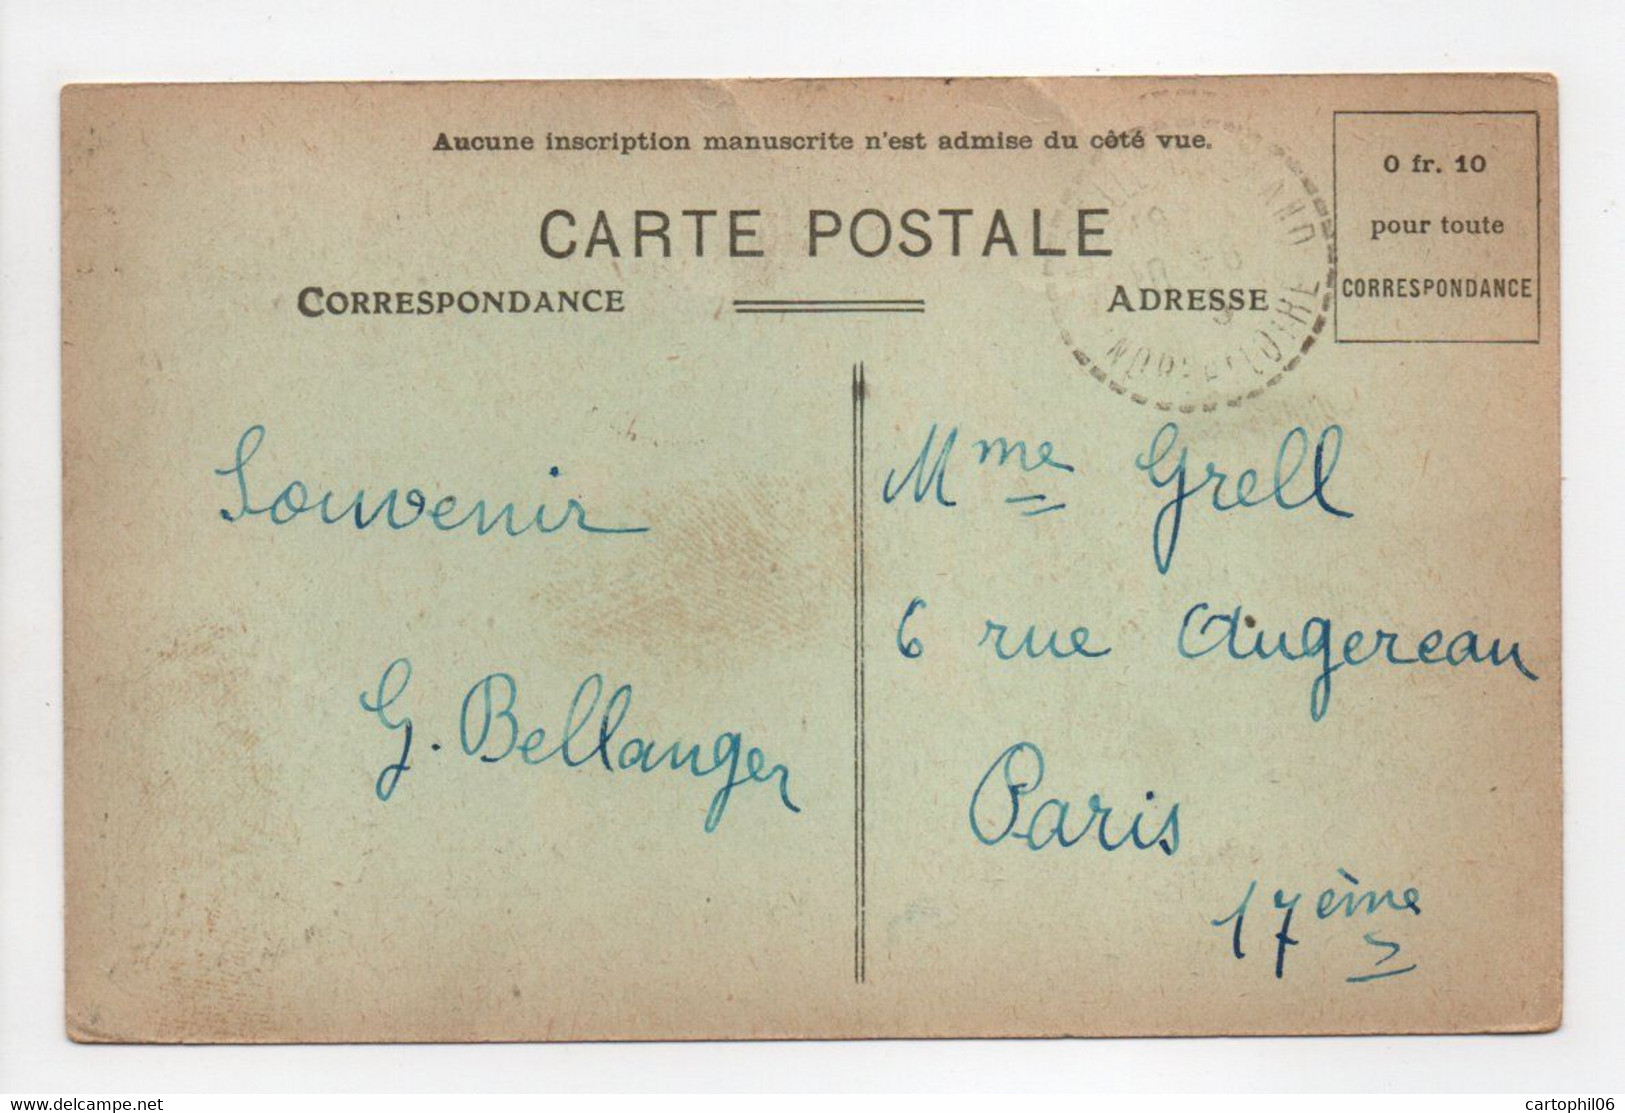 Aucune inscription manuscrite n'est admise du côté vue.
CARTE POSTALE
CORRESPONDANCE
ADRESSE
0 fr. 10
pour toute
CORRESPONDANCE
Souvenir
G. Bellanger
Mme Grell
6 rue Augereau
Paris
17ème
www.delcampe.net
cartophil06